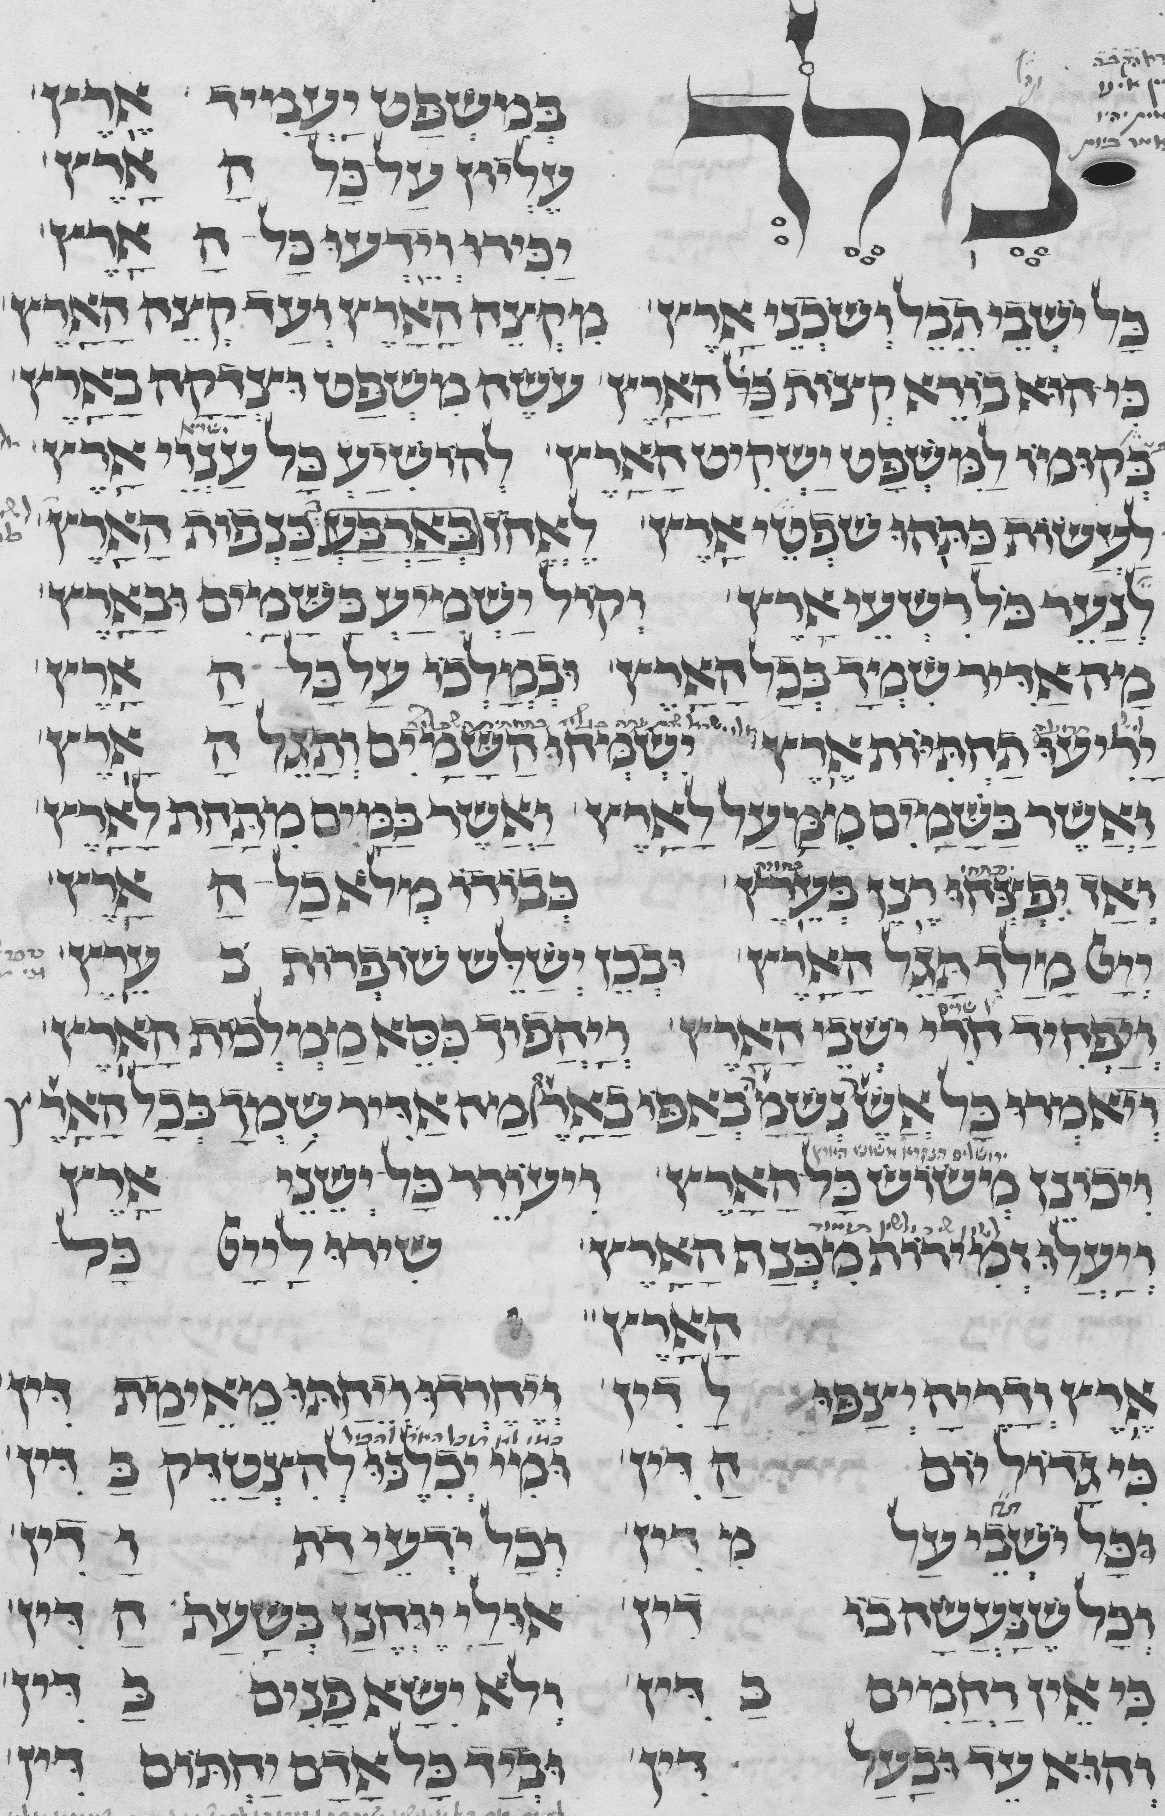 מֶלֶךְ בְּמִשְׁפָּט יַעֲמִיד אָרֶץ׳
עֶלְיוֹן עַל כָּל הָאָרֶץ׳
יַכִּירוּ וְיֵדְעוּ כָּל הָאָרֶץ׳
כָּל יֹשְׁבֵי תֵבֵל וְשֹׁכְנֵי אָרֶץ׳ מִקְצֵה הָאָרֶץ וְעַד קְצֵה הָאָרֶץ׳
כִּי הוּא בּוֹרֵא קְצוֹת כָּל הָאָרֶץ׳ עֹשֶׂה מִשְׁפָּט וּצְדָקָה בָּאָרֶץ׳
בְּקוּמוֹ לַמִּשְׁפָּט יַשְׁקִיט הָאָרֶץ׳ לְהוֹשִׁיעַ כָּל עַנְוֵי אָרֶץ׳
לַעֲשׂוֹת כַּתֹּהוּ שֹׁפְטֵי אָרֶץ׳ לֶאֱחוֹז בְּאַרְבַּע כַּנְפוֹת הָאָרֶץ׳
לְנַעֵר כָּל רִשְׁעֵי אָרֶץ׳ וְקוֹל יַשְׁמִיעַ בַּשָּׁמַיִם וּבָאָרֶץ׳
מָה אַדִּיר שִׁמְךָ בְּכָל הָאָרֶץ׳ וּבְמָלְכוֹ עַל כָּל הָאָרֶץ׳
יָרִיעוּ תַּחְתִּיּוֹת אָרֶץ׳ יִשְׂמְחוּ הַשָּׁמַיִם וְתָגֵל הָאָרֶץ׳
וַאֲשֶׁר בַּשָּׁמַיִם מִמַּעַל לָאָרֶץ׳ וַאֲשֶׁר בַּמַּיִם מִתַּחַת לָאָרֶץ׳
וְאָז יִפְצְחוּ רֶנֶן בְּעֶרֶץ׳ כְּבוֹדוֹ מְלֹא כָל הָאָרֶץ׳
מָלָךְ תָּגֵל הָאָרֶץ׳ וּבְכֵן יְשַׁלֵּשׁ שׁוֹפָרוֹת בְּעֶרֶץ׳
וְיַפְחִיד הָרֵי יֹשְׁבֵי הָאָרֶץ׳ וְיַהֲפֹךְ כִּסֵּא מַמְלְכוֹת הָאָרֶץ׳
וְיֹאמְרוּ כָּל אֲשֶׁר נְשָׁמָה בְאַפּוֹ בָּאָרֶץ מָה אַדִּיר שִׁמְךָ בְּכָל הָאָרֶץ
וִיכוֹנֵן מְשׂוֹשׂ כָּל הָאָרֶץ׳ וִיעוֹרֵר כָּל יְשֵׁנֵי אָרֶץ׳
וְיַעֲלוּ זְמִירוֹת מִכְּנַף הָאָרֶץ׳ שִׁירוּ לַייָ כָּל
הָאָרֶץ׃
אֶרֶץ וְדָרֶיהָ יִצְבְּאוּ לַדִּין׳ וְיֶחֶרְדוּ וְיֵחַתּוּ מֵאֵימַת דִּין׳
כִּי גָדוֹל יוֹם הַדִּין׳ וּמִי יְכַלְכֵּל לְהִצְטַדֵּק בַּדִּין׳
וְכָל יֹשְׁבֵי עַל מִדִּין׳ וְכָל יֹדְעֵי דָת וָדִין׳
וְכָל שֶׁנַּעֲשָׂה בוֹ דִין׳ אוּלַי יוּחֲנַן בִּשְׁעַת הַדִּין׳
כִּי אֵין רַחֲמִים בַּדִּין׳ וְלֹא יִשָּׂא פָנִים בַּדִּין׳
וְהוּא עֵד וּבַעַל דִּין׳ וּבְיַד כָּל אָדָם יַחְתּוֹם דִּין׳